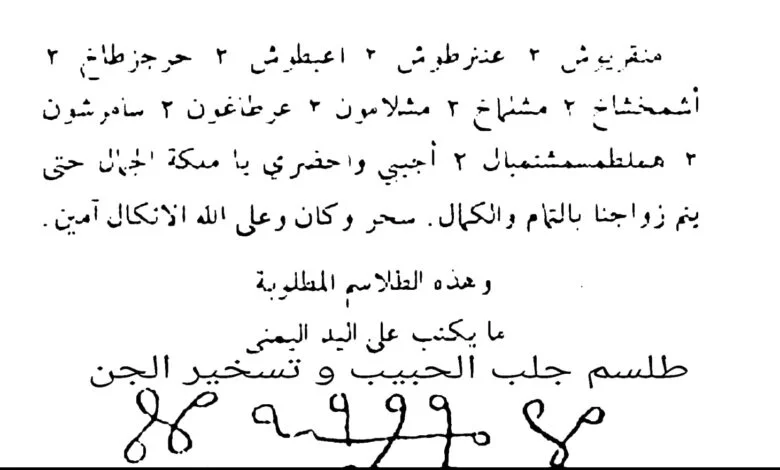 منقريوش ٢ عنزطوش ٢ اعيطوش ٢ حرجزطاخ ٢
أشمخشاخ ٢ مشلماخ ٢ مشلامون ٢ عرطاغون ٢ سامرشون
٢ هملطمسمشتمبال ٢ أجيبي واحضري يا ملكة الجمال حتى
يتم زواجنا بالتمام والكمال. سحر وكان وعلى الله الاتكال آمين.
وهذه الطلاسم المطلوبة
ما يكتب على اليد اليمنى
طلسم جلب الحبيب و تسخير الجن